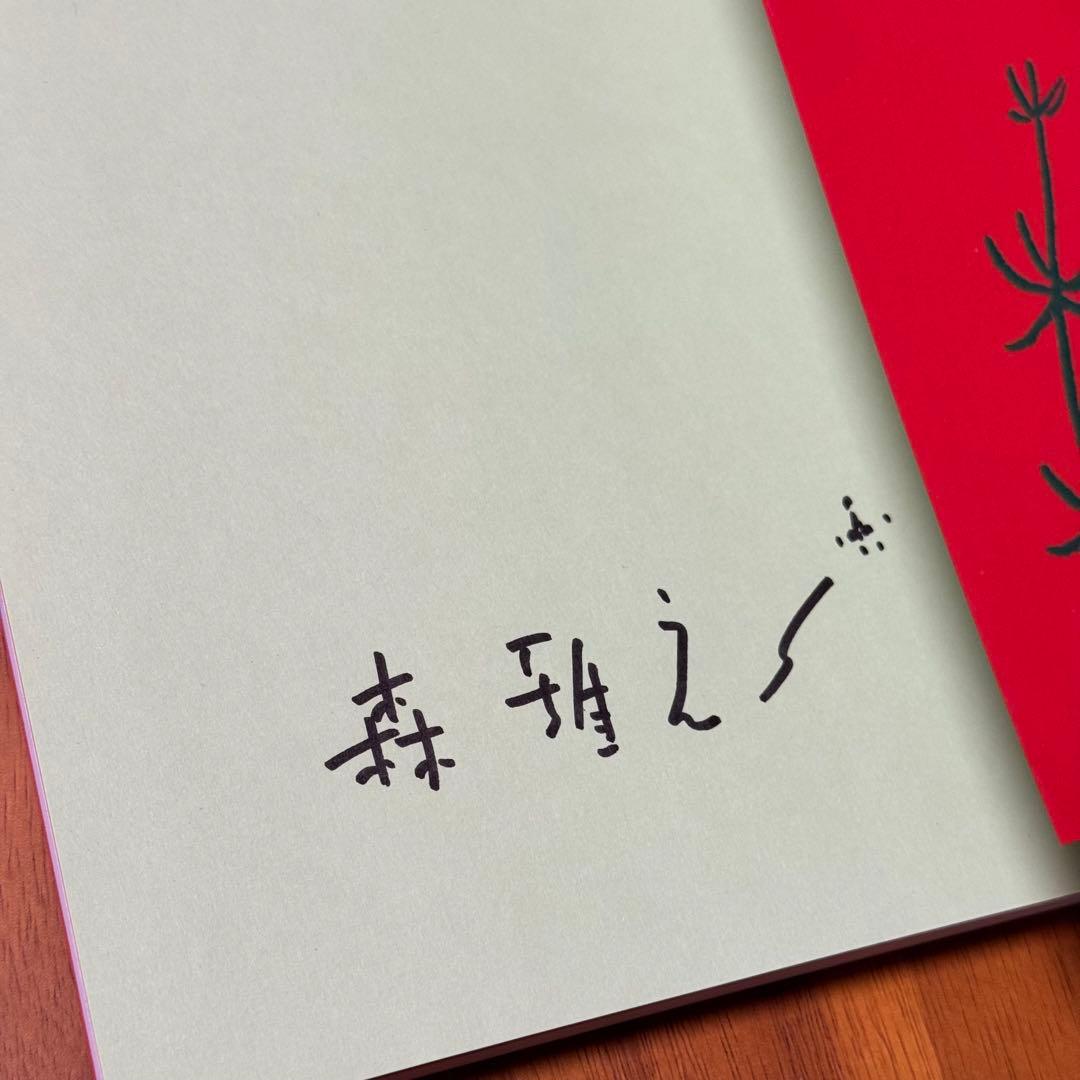 森雅之